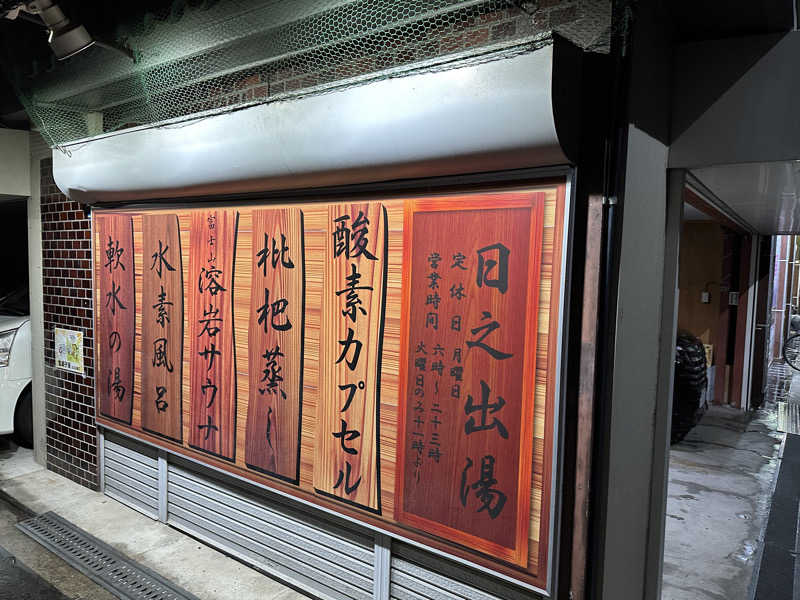 日之出湯
定休日 月曜日
営業時間 六時〜二十三時
火曜日のみ十一時より
酸素カプセル
枇杷蒸し
富士山
溶岩サウナ
水素風呂
軟水の湯